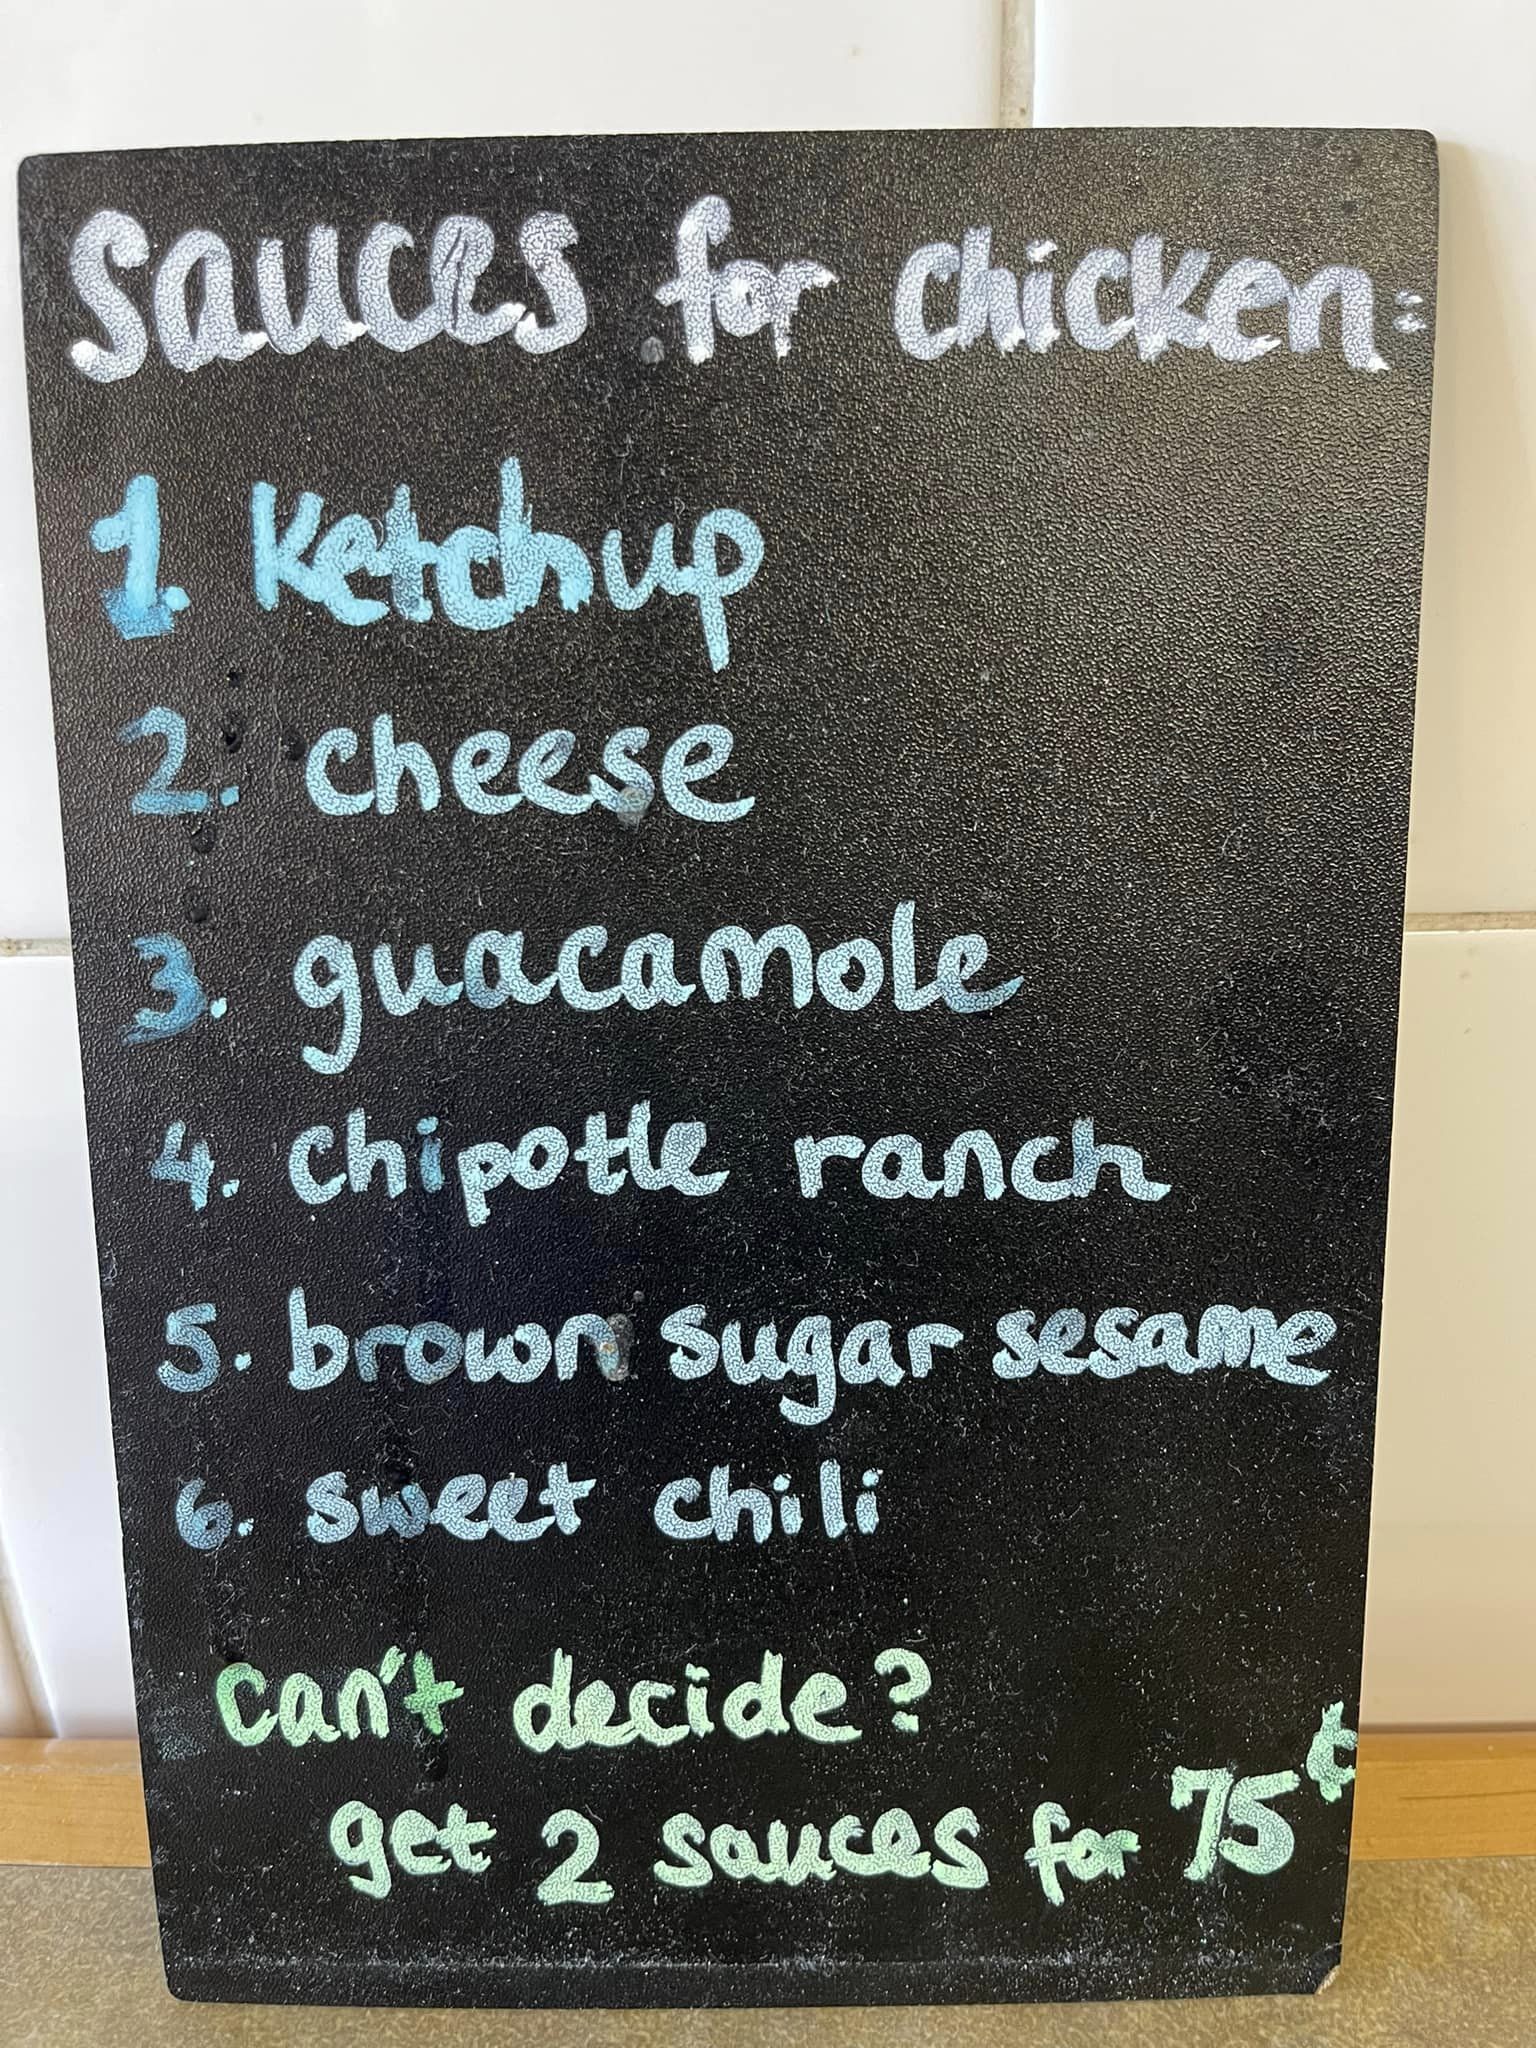 Sauces for chicken:
1. Ketchup
2. cheese
3. guacamole
4. chipotle ranch
5. brown sugar sesame
6. sweet chili
can't decide?
get 2 sauces for 75t